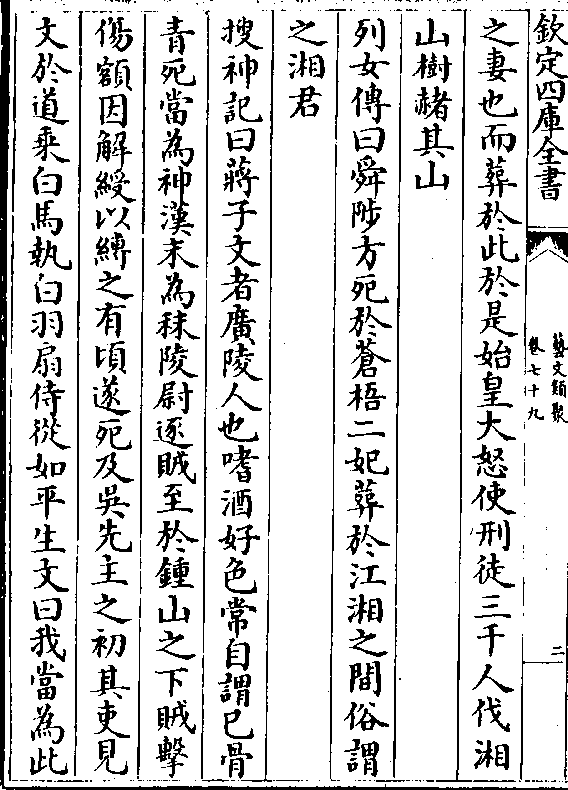 欽定四庫全書
藝文類聚
卷七十九
二
之妻也而葬於此於是始皇大怒使刑徒三千人伐湘
山樹赭其山
列女傳曰舜陟方死於蒼梧二妃葬於江湘之間俗謂
之湘君
搜神記曰蔣子文者廣陵人也嗜酒好色常自謂己骨
青死當為神漢末為秣陵尉逐賊至於鍾山之下賊擊
傷額因解綬以縛之有頃遂死及吳先主之初其吏見
文於道乘白馬執白羽扇侍從如平生文曰我當為此